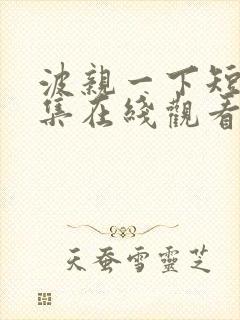 波親一下短
集在綫觀看
天蚕雪靈芝